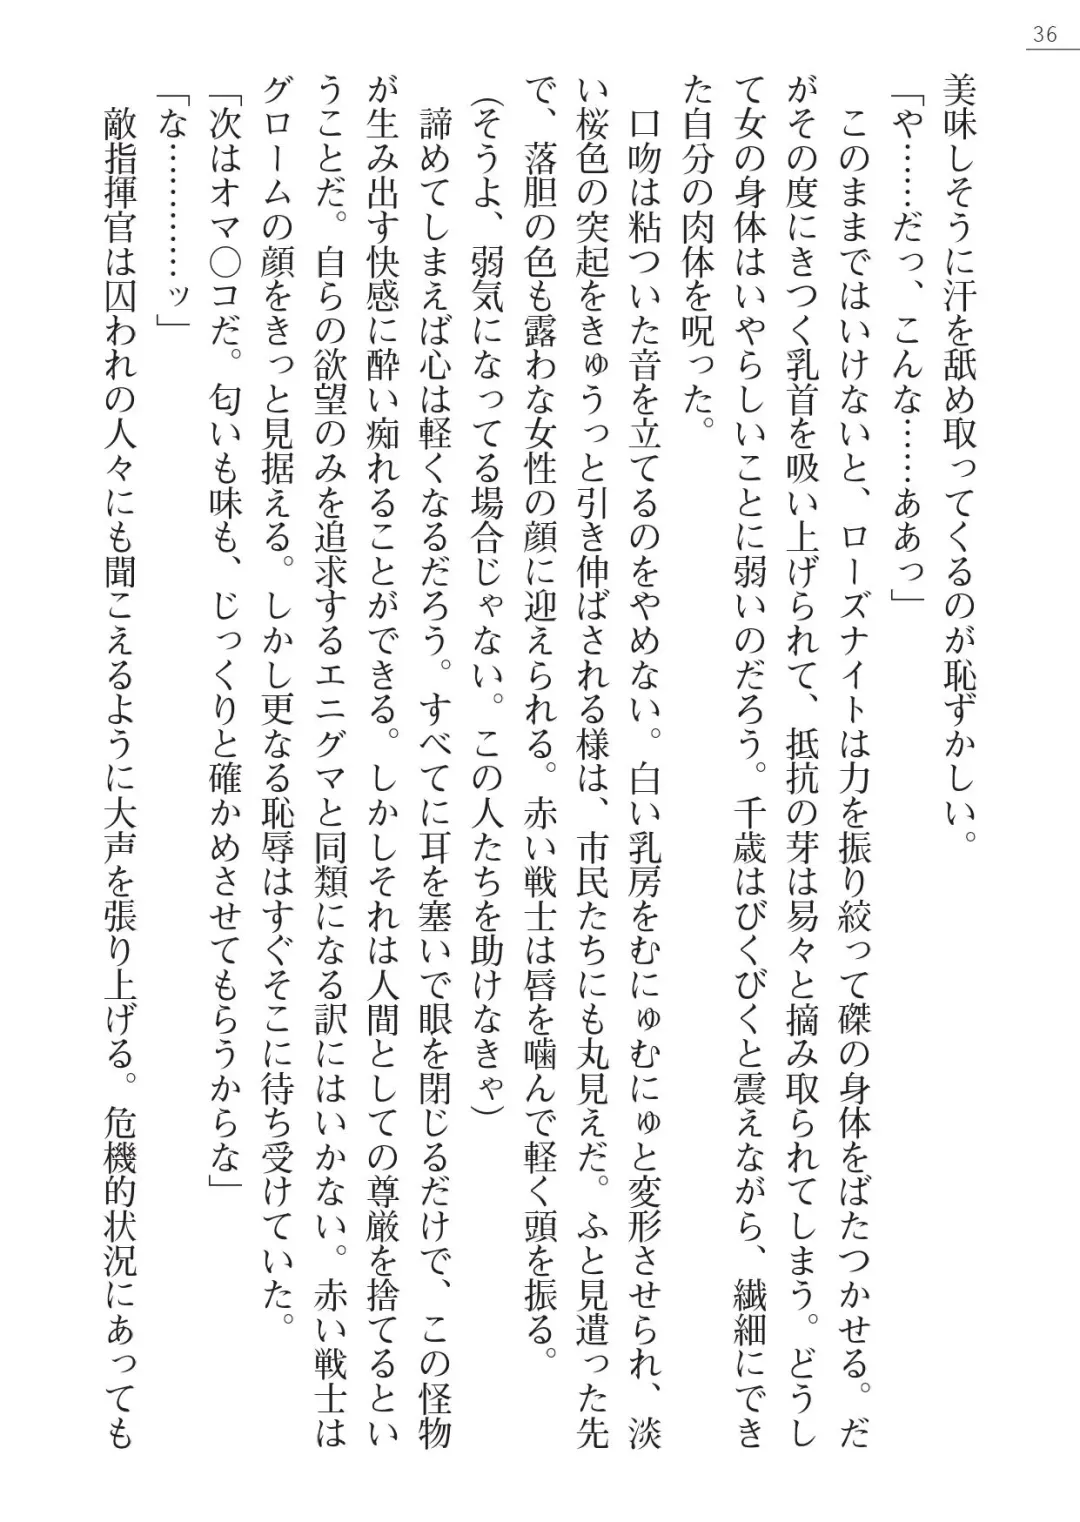 36
美味しそうに汗を舐め取ってくるのが恥ずかしい。
「や……だっ、こんな……ああっ」
　このままではいけないと、ローズナイトは力を振り絞って磔の身体をばたつかせる。だ
がその度にきつく乳首を吸い上げられて、抵抗の芽は易々と摘み取られてしまう。どうし
て女の身体はいやらしいことに弱いのだろう。千歳はびくびくと震えながら、繊細にでき
た自分の肉体を呪った。
　口吻は粘ついた音を立てるのをやめない。白い乳房をむにゅむにゅと変形させられ、淡
い桜色の突起をきゅうっと引き伸ばされる様は、市民たちにも丸見えだ。ふと見遣った先
で、落胆の色も露わな女性の顔に迎えられる。赤い戦士は唇を噛んで軽く頭を振る。
（そうよ、弱気になってる場合じゃない。この人たちを助けなきゃ）
　諦めてしまえば心は軽くなるだろう。すべてに耳を塞いで眼を閉じるだけで、この怪物
が生み出す快感に酔い痴れることができる。しかしそれは人間としての尊厳を捨てるとい
うことだ。自らの欲望のみを追求するエニグマと同類になる訳にはいかない。赤い戦士は
グロームの顔をきっと見据える。しかし更なる恥辱はすぐそこに待ち受けていた。
「次はオマ〇コだ。匂いも味も、じっくりと確かめさせてもらうからな」
「な…………ッ」
　敵指揮官は囚われの人々にも聞こえるように大声を張り上げる。危機的状況にあっても